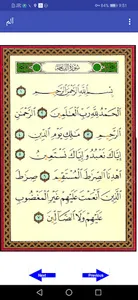 الم
سُورَةُ الفَاتِحَةِ
بِسْمِ ٱللَّهِ ٱلرَّحْمَٰنِ ٱلرَّحِيمِ ١
ٱلْحَمْدُ لِلَّهِ رَبِّ ٱلْعَٰلَمِينَ ٢ ٱلرَّحْمَٰنِ
ٱلرَّحِيمِ ٣ مَٰلِكِ يَوْمِ ٱلدِّينِ ٤
إِيَّاكَ نَعْبُدُ وَإِيَّاكَ نَسْتَعِينُ ٥
ٱهْدِنَا ٱلصِّرَٰطَ ٱلْمُسْتَقِيمَ ٦ صِرَٰطَ
ٱلَّذِينَ أَنْعَمْتَ عَلَيْهِمْ غَيْرِ ٱلْمَغْضُوبِ
عَلَيْهِمْ وَلَا ٱلضَّآلِّينَ ٧
Next Previous